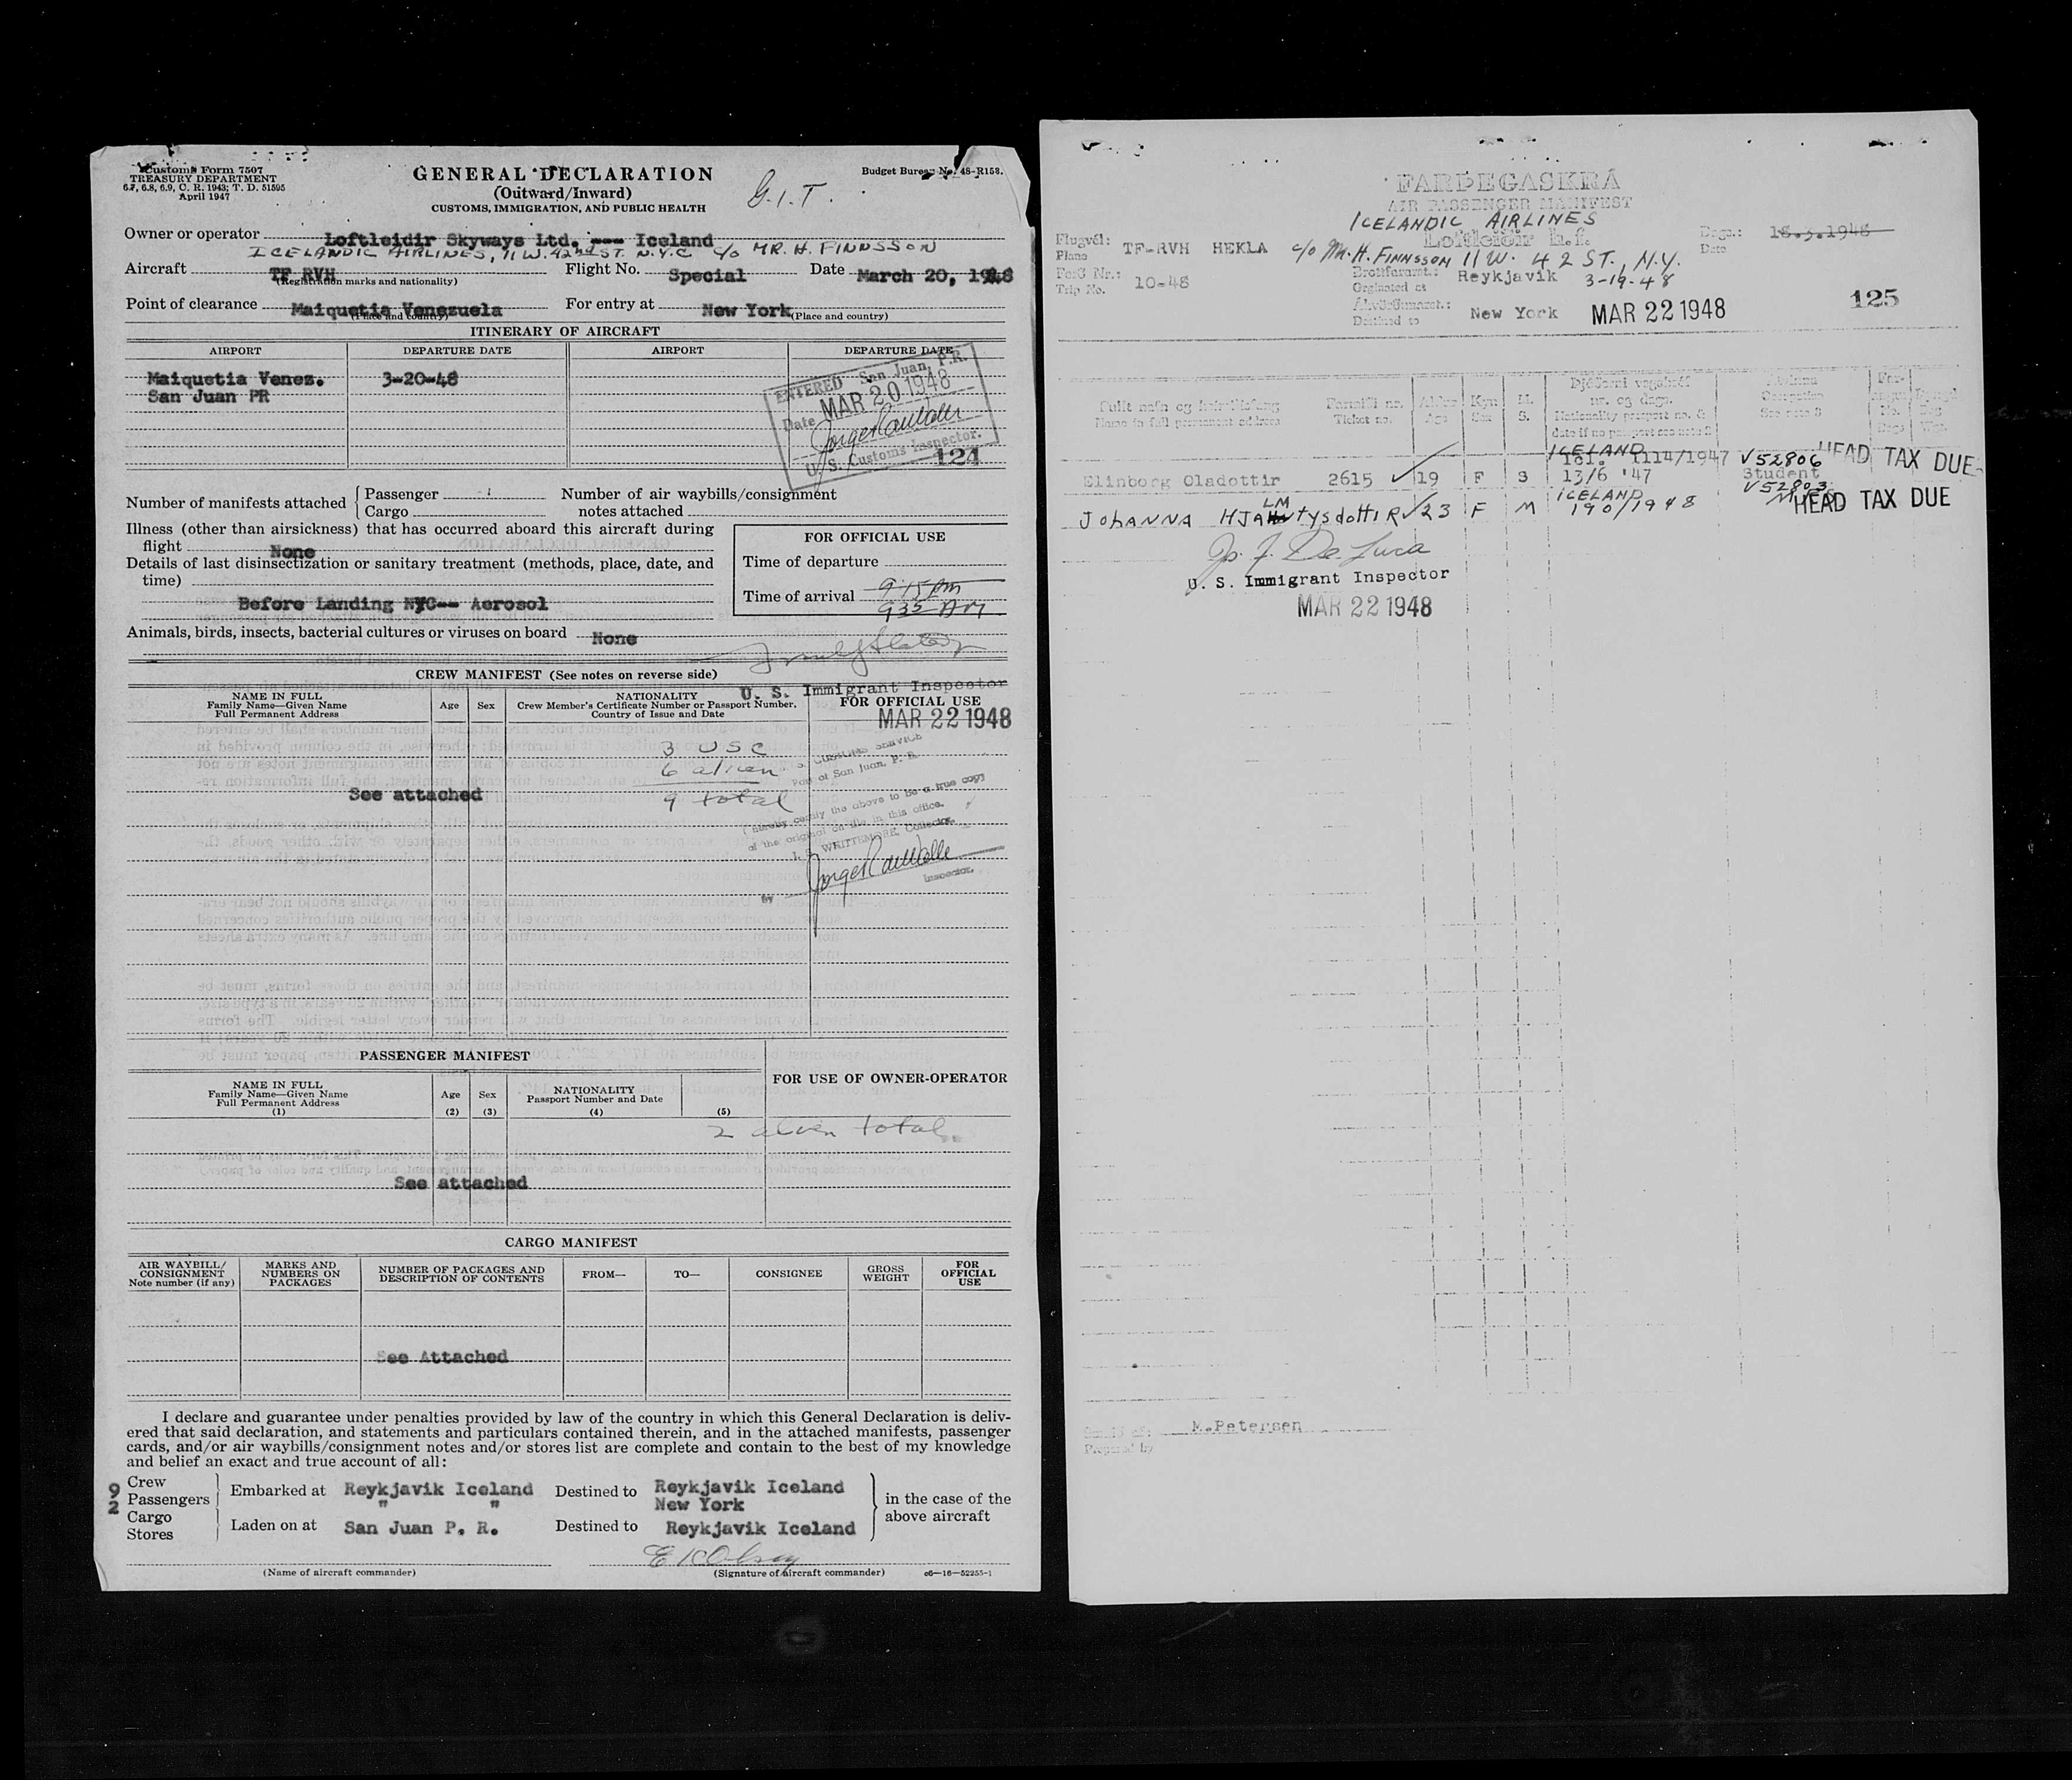 Customs Form 7507
TREASURY DEPARTMENT
6.7, 6.8, 6.9, C. R. 1943; T. D. 51595
April 1947
GENERAL DECLARATION
(Outward/Inward)
CUSTOMS, IMMIGRATION, AND PUBLIC HEALTH
G.I.T.
Budget Bureau No. 48-R158.
Owner or operator Loftleidir Skyways Ltd. --- Iceland
ICELANDIC AIRLINES, 11 W. 42nd ST. N.Y.C c/o MR. H. FINNSSON
Aircraft TF RVH Flight No. Special Date March 20, 1948
(Registration marks and nationality)
Point of clearance Maiquetia Venezuela For entry at New York
(Place and country) (Place and country)
ITINERARY OF AIRCRAFT
AIRPORT DEPARTURE DATE AIRPORT DEPARTURE DATE
Maiquetia Venez. 3-20-48
San Juan PR
ENTERED San Juan, P.R.
Date MAR 20 1948
U. S. Customs Inspector.
124
Number of manifests attached { Passenger Number of air waybills/consignment
Cargo notes attached
Illness (other than airsickness) that has occurred aboard this aircraft during
flight None
Details of last disinsectization or sanitary treatment (methods, place, date, and
time)
Before Landing NYC-- Aerosol
FOR OFFICIAL USE
Time of departure
Time of arrival 9:15 PM
935 AM
Animals, birds, insects, bacterial cultures or viruses on board None
CREW MANIFEST (See notes on reverse side)
U. S. Immigrant Inspector
NAME IN FULL
Family Name—Given Name
Full Permanent Address
Age Sex
NATIONALITY
Crew Member's Certificate Number or Passport Number,
Country of Issue and Date
FOR OFFICIAL USE
MAR 22 1948
3 USC
6 alien
9 total
See attached
CUSTOMS SERVICE
Port of San Juan, P. R.
I hereby certify the above to be a true copy
of the original on file in this office.
WHITTEMORE, Collector
by
Inspector.
PASSENGER MANIFEST
NAME IN FULL
Family Name—Given Name
Full Permanent Address
(1)
Age
(2)
Sex
(3)
NATIONALITY
Passport Number and Date
(4)
(5)
FOR USE OF OWNER-OPERATOR
2 alien total
See attached
CARGO MANIFEST
AIR WAYBILL/
CONSIGNMENT
Note number (if any)
MARKS AND
NUMBERS ON
PACKAGES
NUMBER OF PACKAGES AND
DESCRIPTION OF CONTENTS
FROM—
TO—
CONSIGNEE
GROSS
WEIGHT
FOR
OFFICIAL
USE
See Attached
I declare and guarantee under penalties provided by law of the country in which this General Declaration is deliv-
ered that said declaration, and statements and particulars contained therein, and in the attached manifests, passenger
cards, and/or air waybills/consignment notes and/or stores list are complete and contain to the best of my knowledge
and belief an exact and true account of all:
9 Crew
2 Passengers
Cargo
Stores
Embarked at Reykjavik Iceland Destined to Reykjavik Iceland
" " New York
Laden on at San Juan P. R. Destined to Reykjavik Iceland
in the case of the
above aircraft
(Name of aircraft commander) (Signature of aircraft commander) c6—16—52255-1
FARÞEGASKRÁ
AIR PASSENGER MANIFEST
ICELANDIC AIRLINES
Loftleiðir h.f.
c/o MR. H. FINNSSON 11 W. 42 ST., N.Y.
Flugvél:
Plane TF-RVH HEKLA
Dags.:
Date 18.3.1948
Ferð Nr.:
Trip No. 10-48
Brottfararst.:
Orginated at Reykjavik 3-19-48
Ákvörðunarst.:
Destined to New York MAR 22 1948
125
Fullt nafn og heimilisfang
Name in full permanent address
Farseðil nr.
Ticket no.
Aldur
Age
Kyn
Sex
M.
S.
Þjóðerni vegabréf
nr. og dags.
Nationality passport no. &
date if no passport see note
Atvinna
Occupation
See note
Elinborg Oladottir 2615 ✓ 19 F S ICELAND Isl. 1114/1947 13/6 '47 V52806 Student HEAD TAX DUE
JOHANNA HJALMTYSDOTTIR ✓ 23 F M ICELAND 190/1948 V52803 HEAD TAX DUE
U. S. Immigrant Inspector
MAR 22 1948
Prepared by M.Petersen